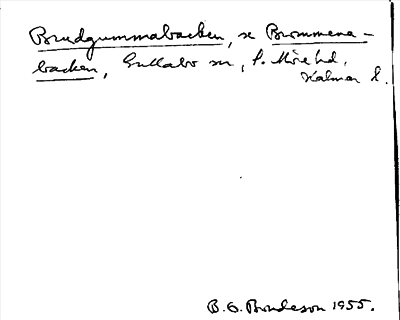 Brudgummabacken, se Brommena-
backen, Gullabo sn, S. Möre hd,
Kalmar l.
B. G. Brudeson 1955.